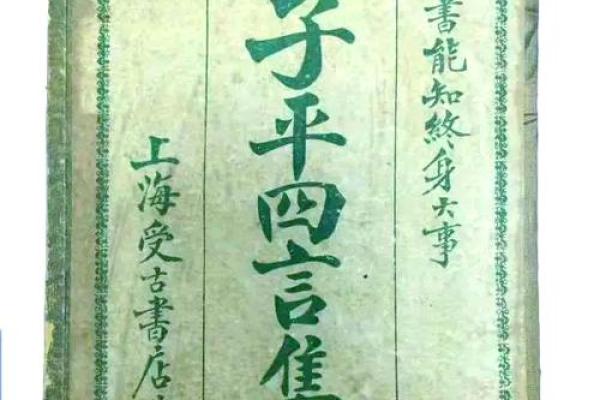 書能知終身大事
子平四言集
上海受古書店